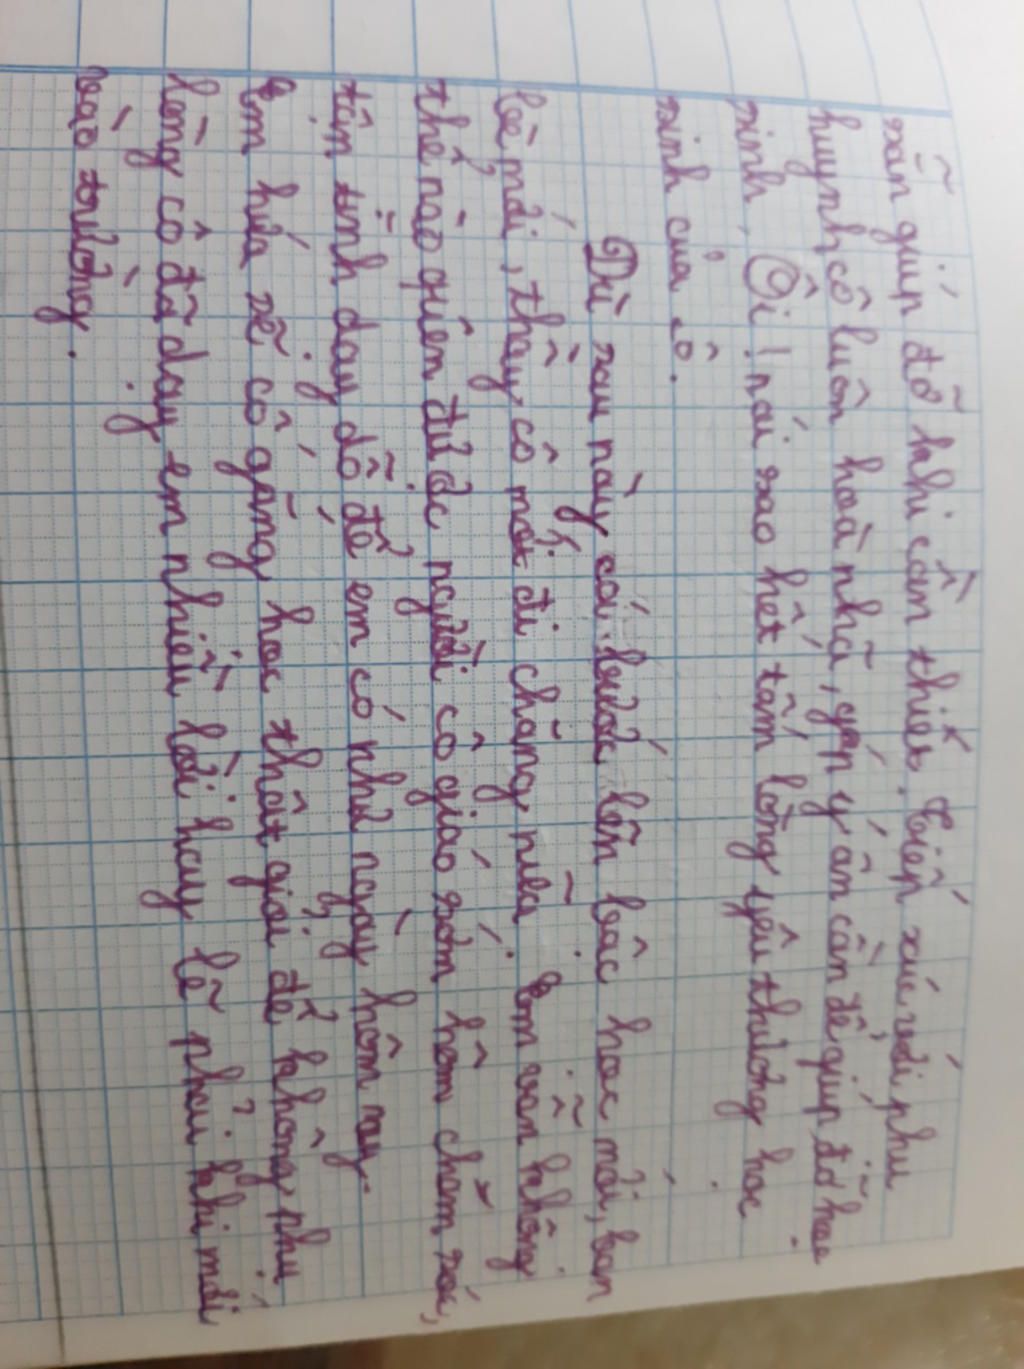 sẵn giúp đỡ khi cần thiết. Tiếp xúc với phụ
huynh cô luôn hoà nhã, yến ý ân cần để giúp đỡ học
sinh. Ôi! nói sao hết tấm lòng yêu thương học
sinh của cô.
Dù sau này có bước lên bậc học mới, bạn
bè mới, thầy cô mới đi chăng nữa. Em vẫn không
thể nào quên được người cô giáo sớm hôm chăm sóc,
tận tình dạy dỗ để em có như ngày hôm nay.
Em hứa sẽ cố gắng học thật giỏi để không phụ
lòng cô đã dạy em nhiều lời hay lẽ phải khi mới
vào trường.